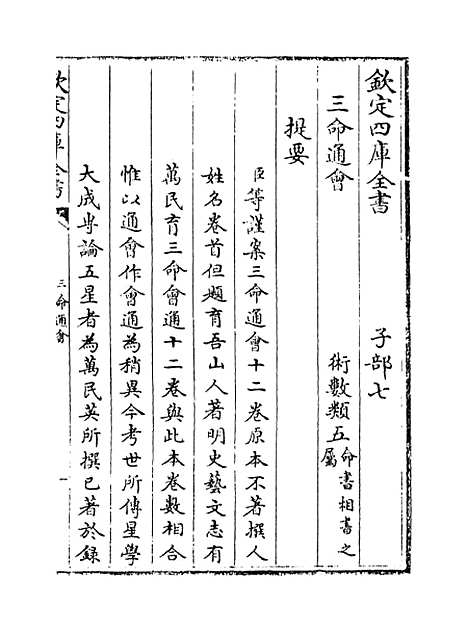 欽定四庫全書
子部七
三命通會
術數類五命書相書之屬
提要
臣等謹案三命通會十二卷原本不著撰人
姓名卷首但題育吾山人著明史藝文志有
萬民育三命會通十二卷與此本卷數相合
惟以通會作會通為稍異今考世所傳星學
大成専論五星者為萬民英所撰已著於録
欽定四庫全書
三命通會
一